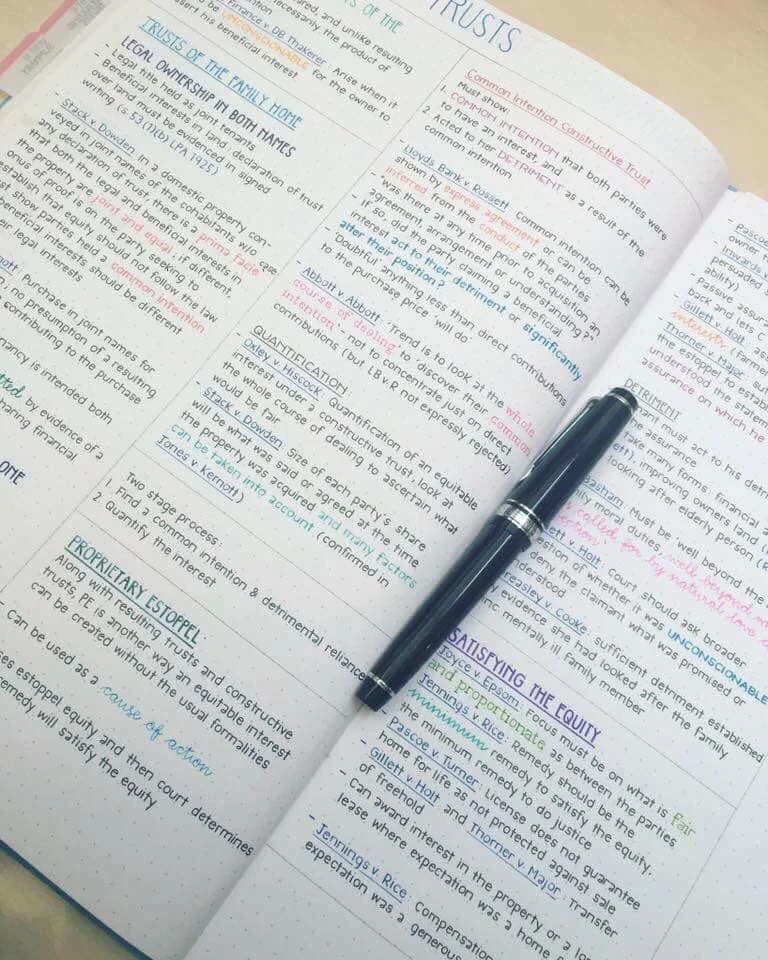 TRUSTS
TS OF THE
ared, and unlike resulting
necessarily the product of
Farrance v. DB Thakerer: Arise when it
be UNCONSCIONABLE for the owner to
assert his beneficial interest
TRUSTS OF THE FAMILY HOME
LEGAL OWNERSHIP IN BOTH NAMES
- Legal title held as joint tenants
- Beneficial interests in land: declaration of trust
over land must be evidenced in signed
writing (s 53(1)(b) LPA 1925)
- Stack v. Dowden: In a domestic property con-
veyed in joint names of the cohabitants w/o case
any declaration of trust, there is a prima facie
that both the legal and beneficial interests in
the property are joint and equal, if different,
onus of proof is on the party seeking to
establish that equity should not follow the law
st show parties held a common intention
beneficial interests should be different
eir legal interests
nott: Purchase in joint names for
n, no presumption of a resulting
contributing to the purchase
nancy is intended both
tted by evidence of a
haring financial
OME
Common Intention Constructive Trust
Must show:
1. COMMON INTENTION that both parties were
to have an interest, and
2. Acted to her DETRIMENT as a result of the
common intention
- Lloyds Bank v. Rossett: Common intention can be
shown by express agreement or can be
inferred from the conduct of the parties
- was there at any time prior to acquisition an
agreement, arrangement or understanding?
- if so, did the party claiming a beneficial
interest act to their detriment or significantly
alter their position?
- 'Doubtful' anything less than direct contributions
to the purchase price 'will do'
- Abbott v. Abbott: Trend is to look at the 'whole
course of dealing' to discover their common
intention - not to concentrate just on direct
contributions (but LB v. R not expressly rejected)
QUANTIFICATION
- Oxley v. Hiscock: Quantification of an equitable
interest under a constructive trust, look at
the whole course of dealing to ascertain what
would be fair
- Stack v. Dowden: Size of each party's share
will be what was said or agreed at the time
the property was acquired and many factors
can be taken into account (confirmed in
Jones v. Kernott)
Two stage process:
1. Find a common intention & detrimental reliance
2. Quantify the interest
PROPRIETARY ESTOPPEL
Along with resulting trusts and constructive
trusts, PE is another way an equitable interest
can be created without the usual formalities
- Can be used as a cause of action
ses estoppel equity and then court determines
remedy will satisfy the equity
- Pascoe
owner
- Inwards v
persuaded
ability)
- Passive assura
back and lets c
- Gillett v. Holt
interests (farmer
- Thorner v. Major: suff
the estoppel to establis
understood the statem
assurance on which he r
DETRIMENT
ant must act to his detri
he assurance
take many forms: financial a
ett), improving owners land (
looking after elderly person (R
asham: Must be 'well beyond the
mily moral duties, well beyond w
s called for by natural love a
ection
lett v. Holt: Court should ask broader
estion of whether it was UNCONSCIONABLE
deny the claimant what was promised or
derstood
reasley v. Cooke: sufficient detriment established
y evidence she had looked after the family
inc. mentally ill family member
SATISFYING THE EQUITY
Joyce v. Epsom: Focus must be on what is fair
and proportionate as between the parties
- Jennings v. Rice: Remedy should be the
minimum remedy to satisfy the equity.
the minimum remedy to do justice
- Pascoe v. Turner: License does not guarantee
home for life as not protected against sale
- Gillett v. Holt and Thorner v. Major: Transfer
of freehold
- Can award interest in the property or a lon
lease where expectation was a home f
- Jennings v. Rice: Compensation
expectation was a generous